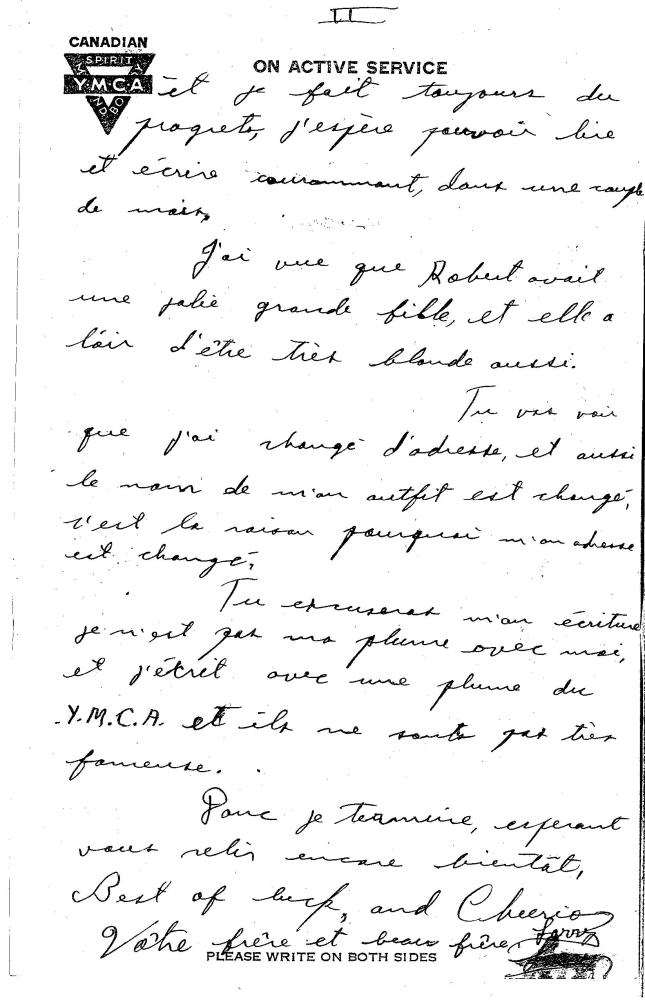 II
CANADIAN
SPIRIT
Y.M.C.A
MIND
BODY
ON ACTIVE SERVICE
et je fait toujours du
progrets, j'espère pouvoir lire
et écrire courammant, dans une couple
de mois,
J'ai vue que Robert avait
une jolie grande fille, et elle a
l'air d'être très blonde aussi.
Tu vas voir
que j'ai changé d'adresse, et aussi
le nom de mon outfit est changé,
c'est la raison pourquoi mon adresse
est changé,
Tu excuseras mon écriture
je n'est pas ma plume avec moi,
et j'écrit avec une plume du
Y.M.C.A. et ils ne sonts pas très
fameuse.
Donc je termine, esperant
vous relir encore bientôt,
Best of luck, and Cheerio
Vôtre frère et beau frère
Larry
PLEASE WRITE ON BOTH SIDES